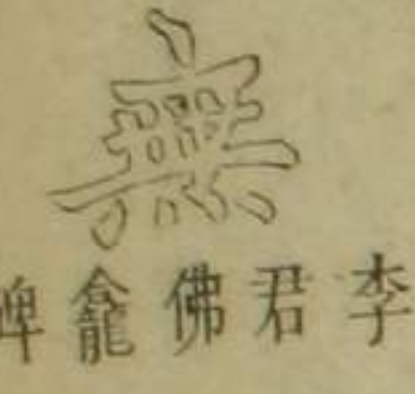 無
李君佛龕碑